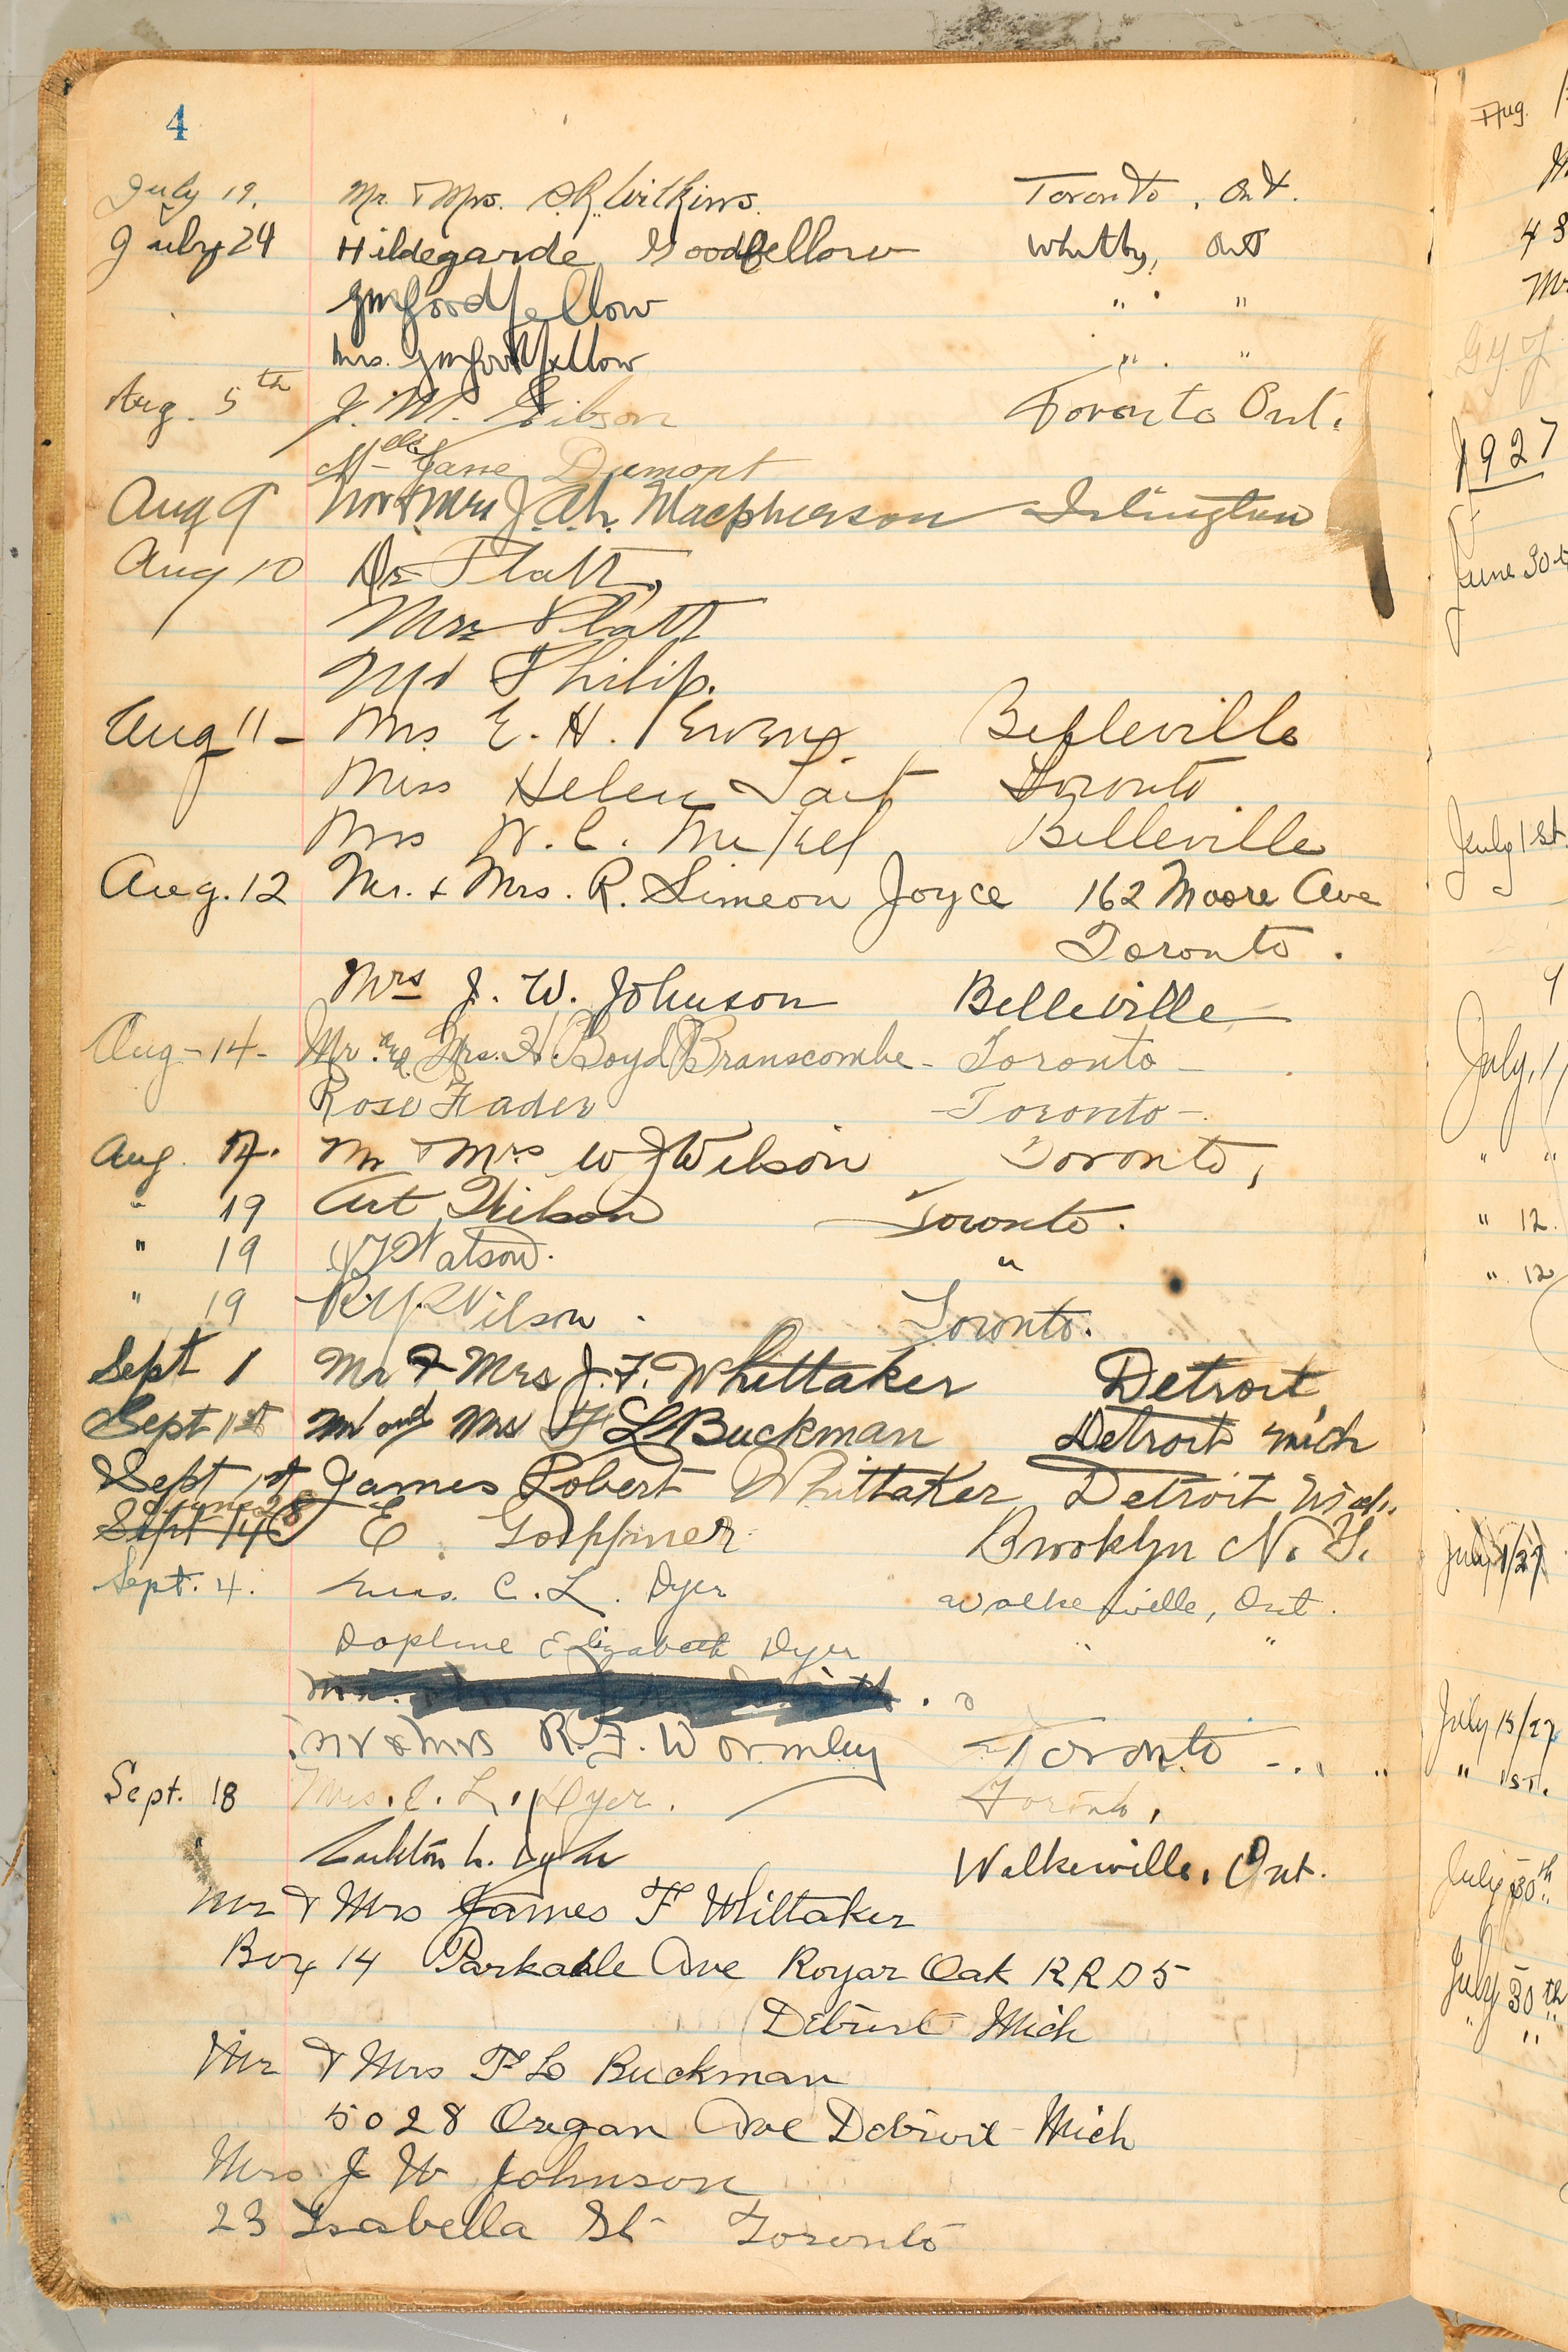 4
July 19. Mr. & Mrs. S.R. Wilkins. Toronto, Ont.
July 24 Hildegarde Goodfellow Whitby, Ont
GM Goodfellow " "
Mrs. GM Goodfellow " "
Aug. 5th J. M. Gibson Toronto Ont.
Mlle Jane Dumont
Aug 9 Mr & Mrs J. A. h. Macpherson Islington
Aug 10 Dr Platt,
Mrs Platt
Philip.
Aug 11 - Mrs E. H. Belleville
Miss Helen Tait Toronto
Mrs W. C. Mikel Belleville
Aug. 12 Mr. & Mrs. R. Simeon Joyce 162 Moore Ave
Toronto.
Mrs J. W. Johnson Belleville
Aug - 14 - Mr. and Mrs. H. Boyd Branscombe - Toronto -
Rose Fader - Toronto -
Aug. 17. Mr & Mrs W J Wilson Toronto,
" 19 Art Wilson Toronto.
" 19 Watson. "
" 19 Wilson. Toronto.
Sept 1 Mr & Mrs J. F. Whittaker Detroit,
Sept 1st Mr and Mrs F L Buckman Detroit Mich
Sept 1st James Robert Whittaker Detroit Mich.
E. Brooklyn N. Y.
Sept. 4. Mrs. C. L. Dyer Walkerville, Ont.
Daphne Elizabeth Dyer " "
Mr & Mrs R. F. Wormley Toronto
Sept. 18 Mrs. C. L. Dyer. Toronto,
" L. Dyer Walkerville, Ont.
Mr & Mrs James F Whittaker
Box 14 Parkdale Ave Royar Oak R R D 5
Detroit Mich
Mr & Mrs F L Buckman
5028 Oregan Ave Detroit Mich
Mrs J W Johnson
23 Isabella St Toronto
Aug.
1927
June 30
July 1st.
July 1
" "
" 12.
" 12
July 15/27
" 1st.
July 30th
July 30th